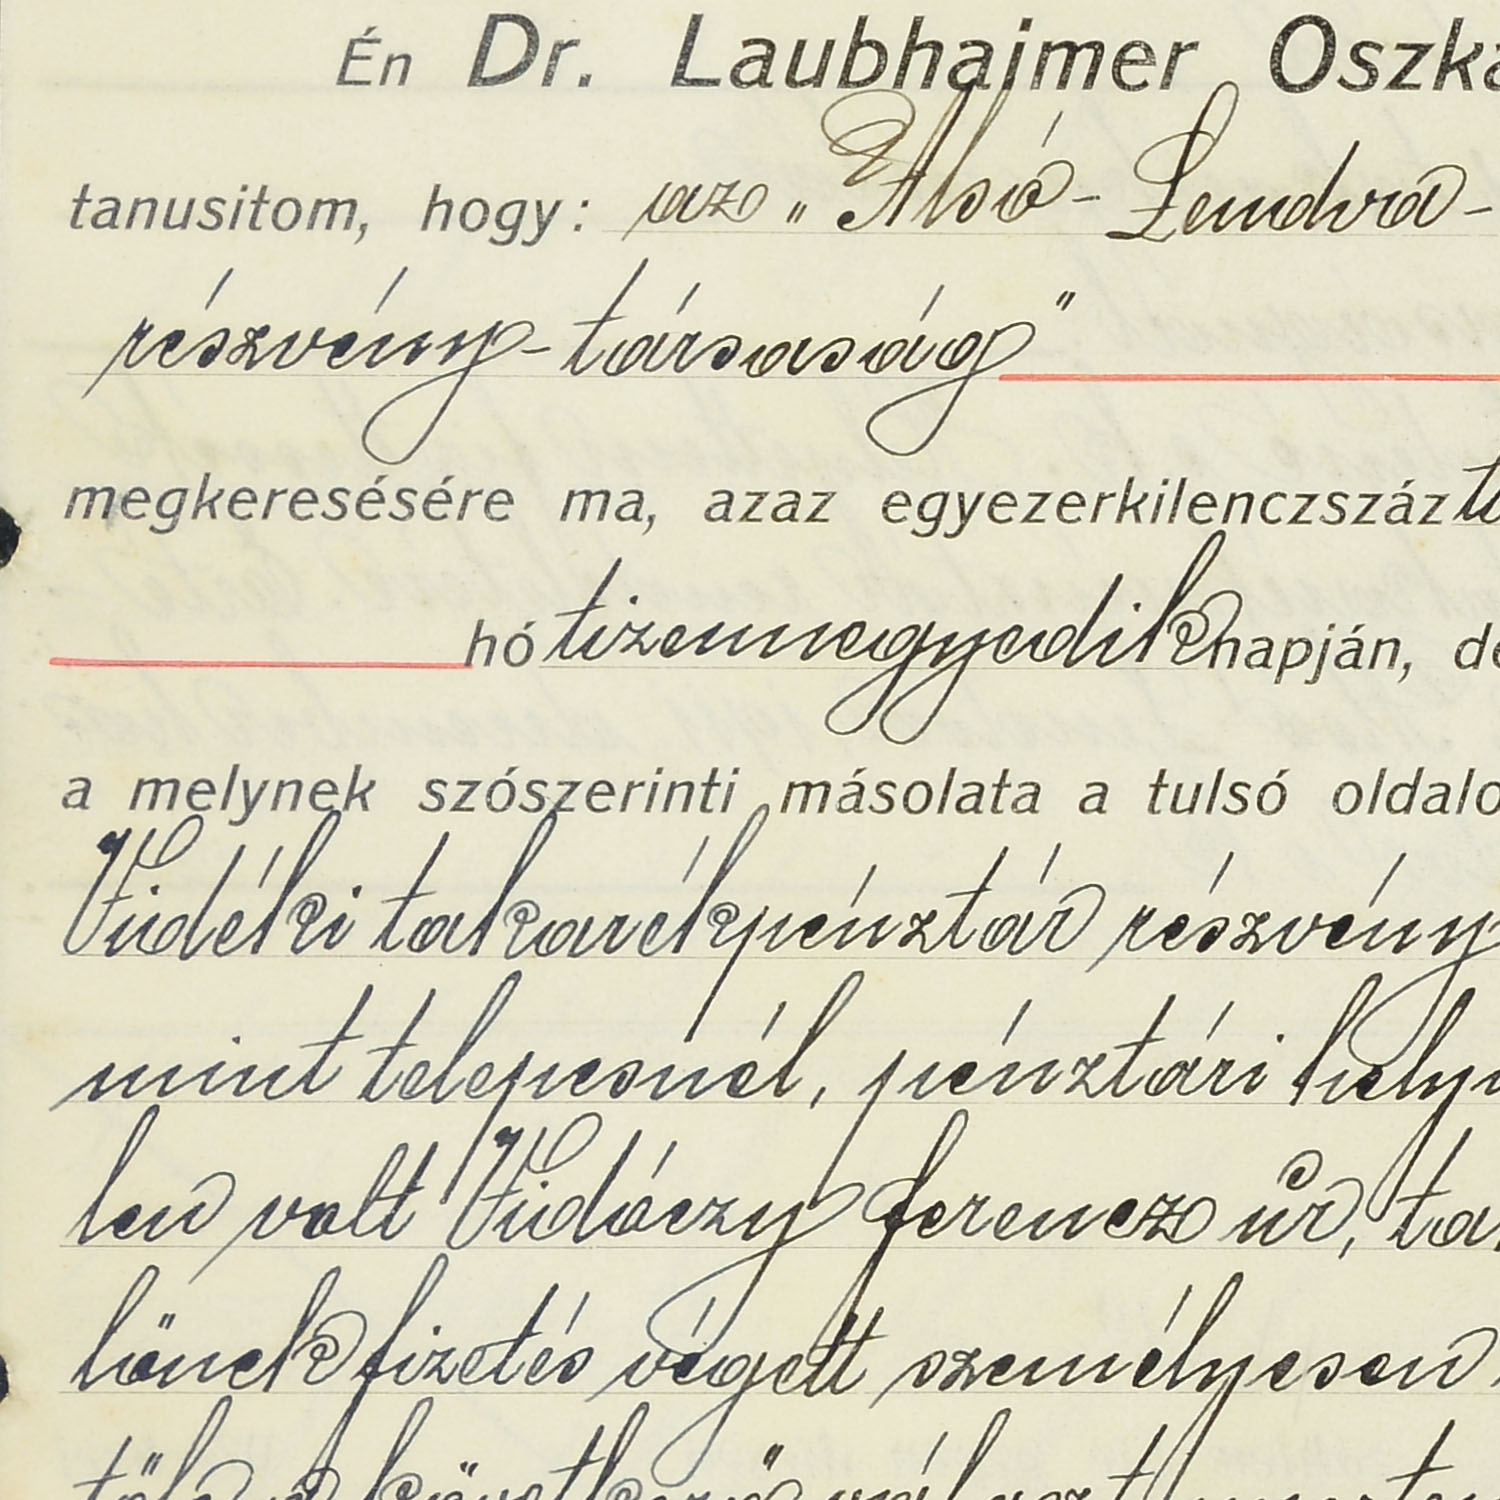 Én Dr. Laubhaimer Oszká
tanusitom, hogy: az „Alsó-Lendva-
részvény-társaság"
megkeresésére ma, azaz egyezerkilenczszázti
hó tizennegyedik napján, de
a melynek szószerinti másolata a tulsó oldalo
Vidéki takarékpénztár részvény
mint telepesnél, pénztári helyi
len volt Vidóczy Ferencz úr, tak
lönek fizetés végett személyesen
től a következő választ